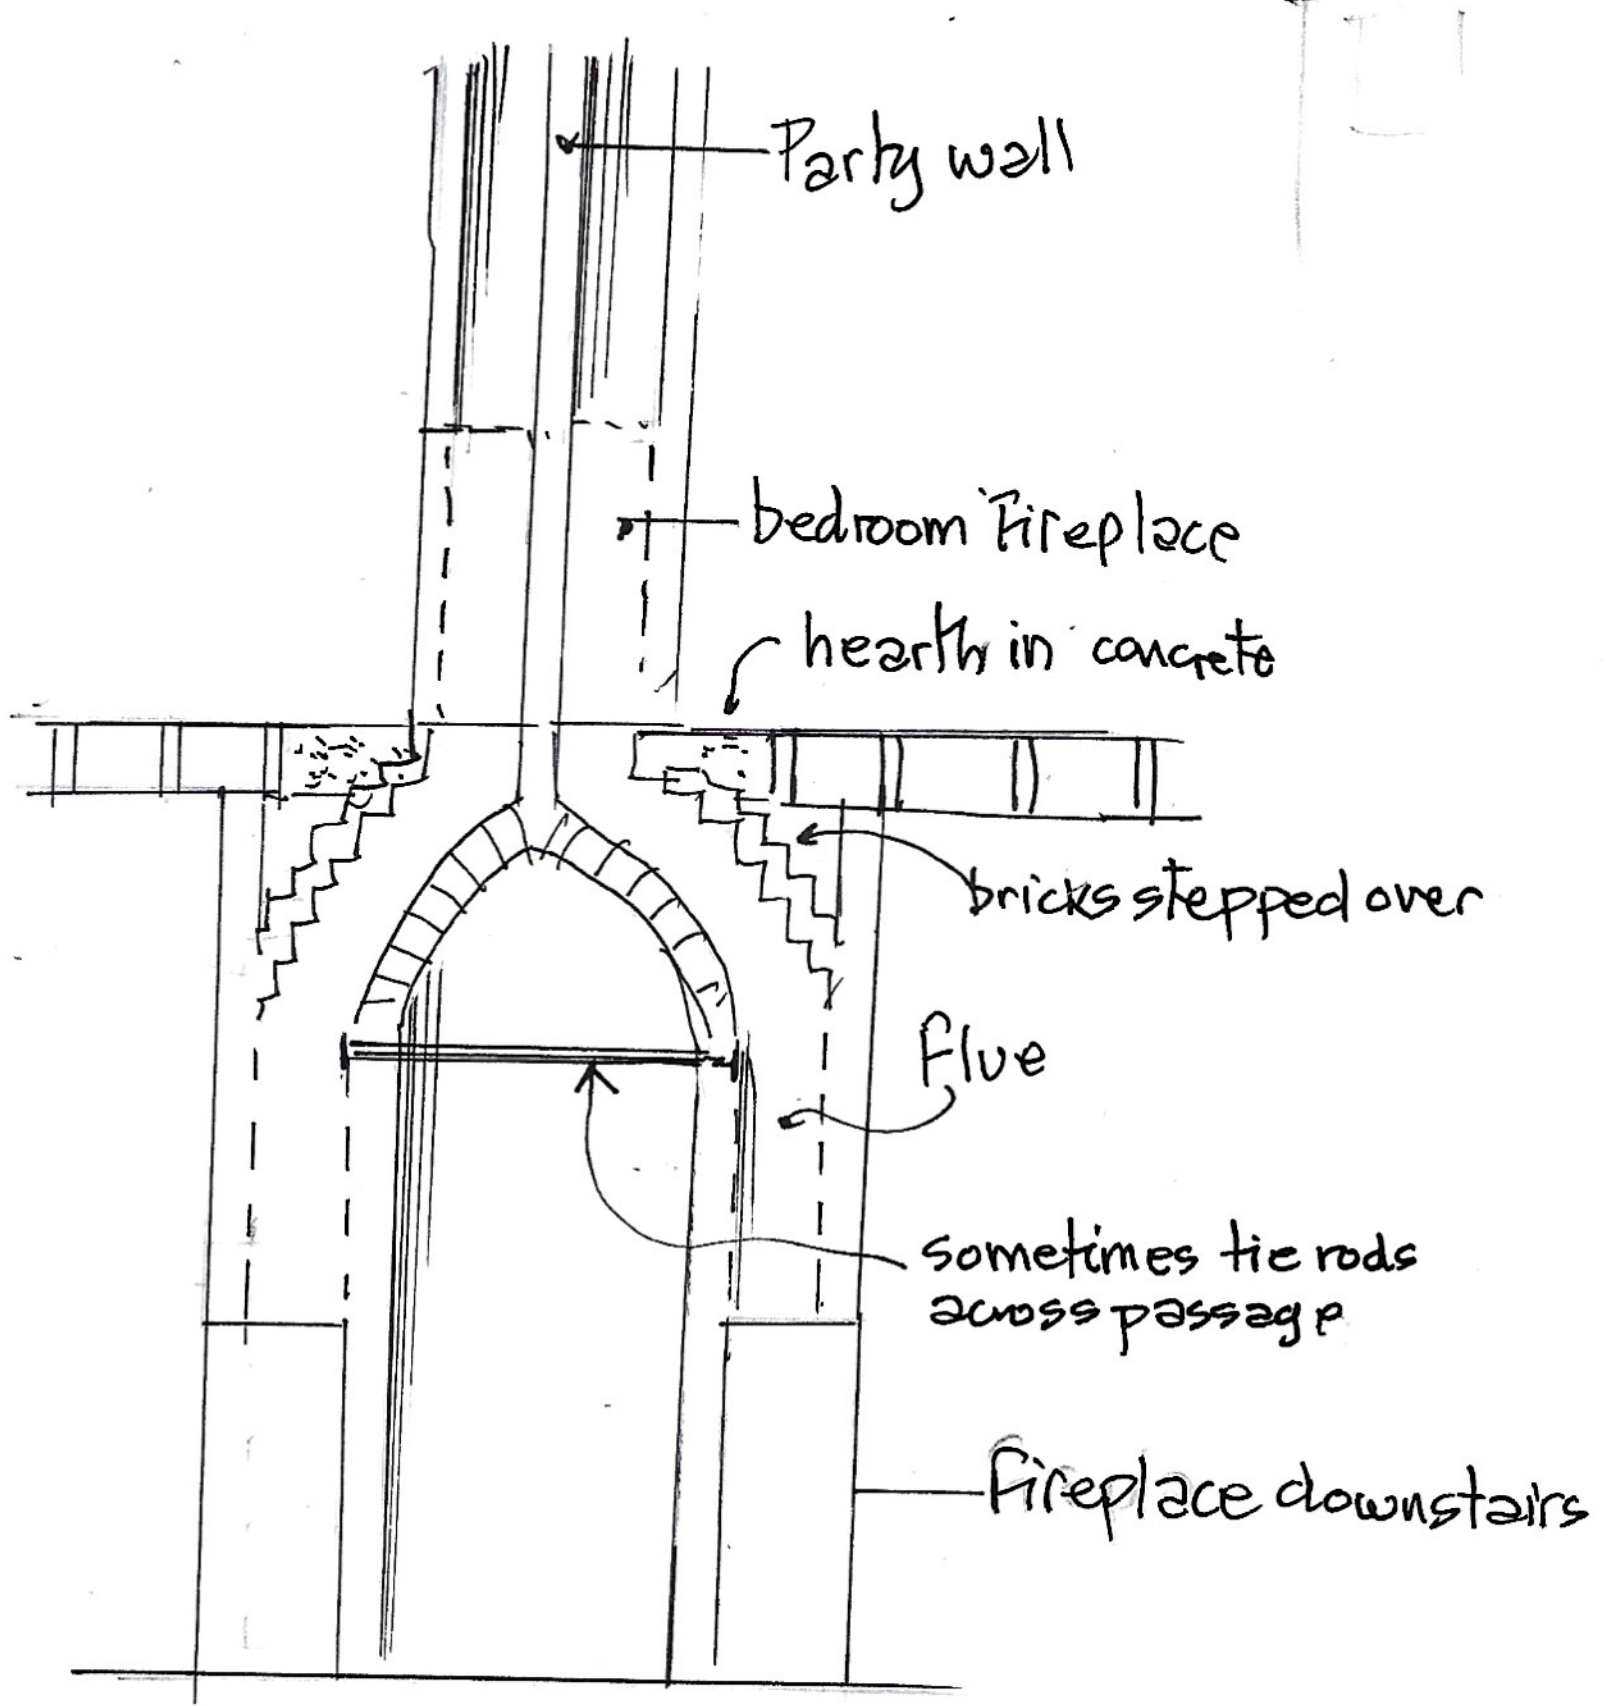 Party wall
bedroom Fireplace
hearth in concrete
bricks stepped over
flue
sometimes tie rods
across passage
fireplace downstairs